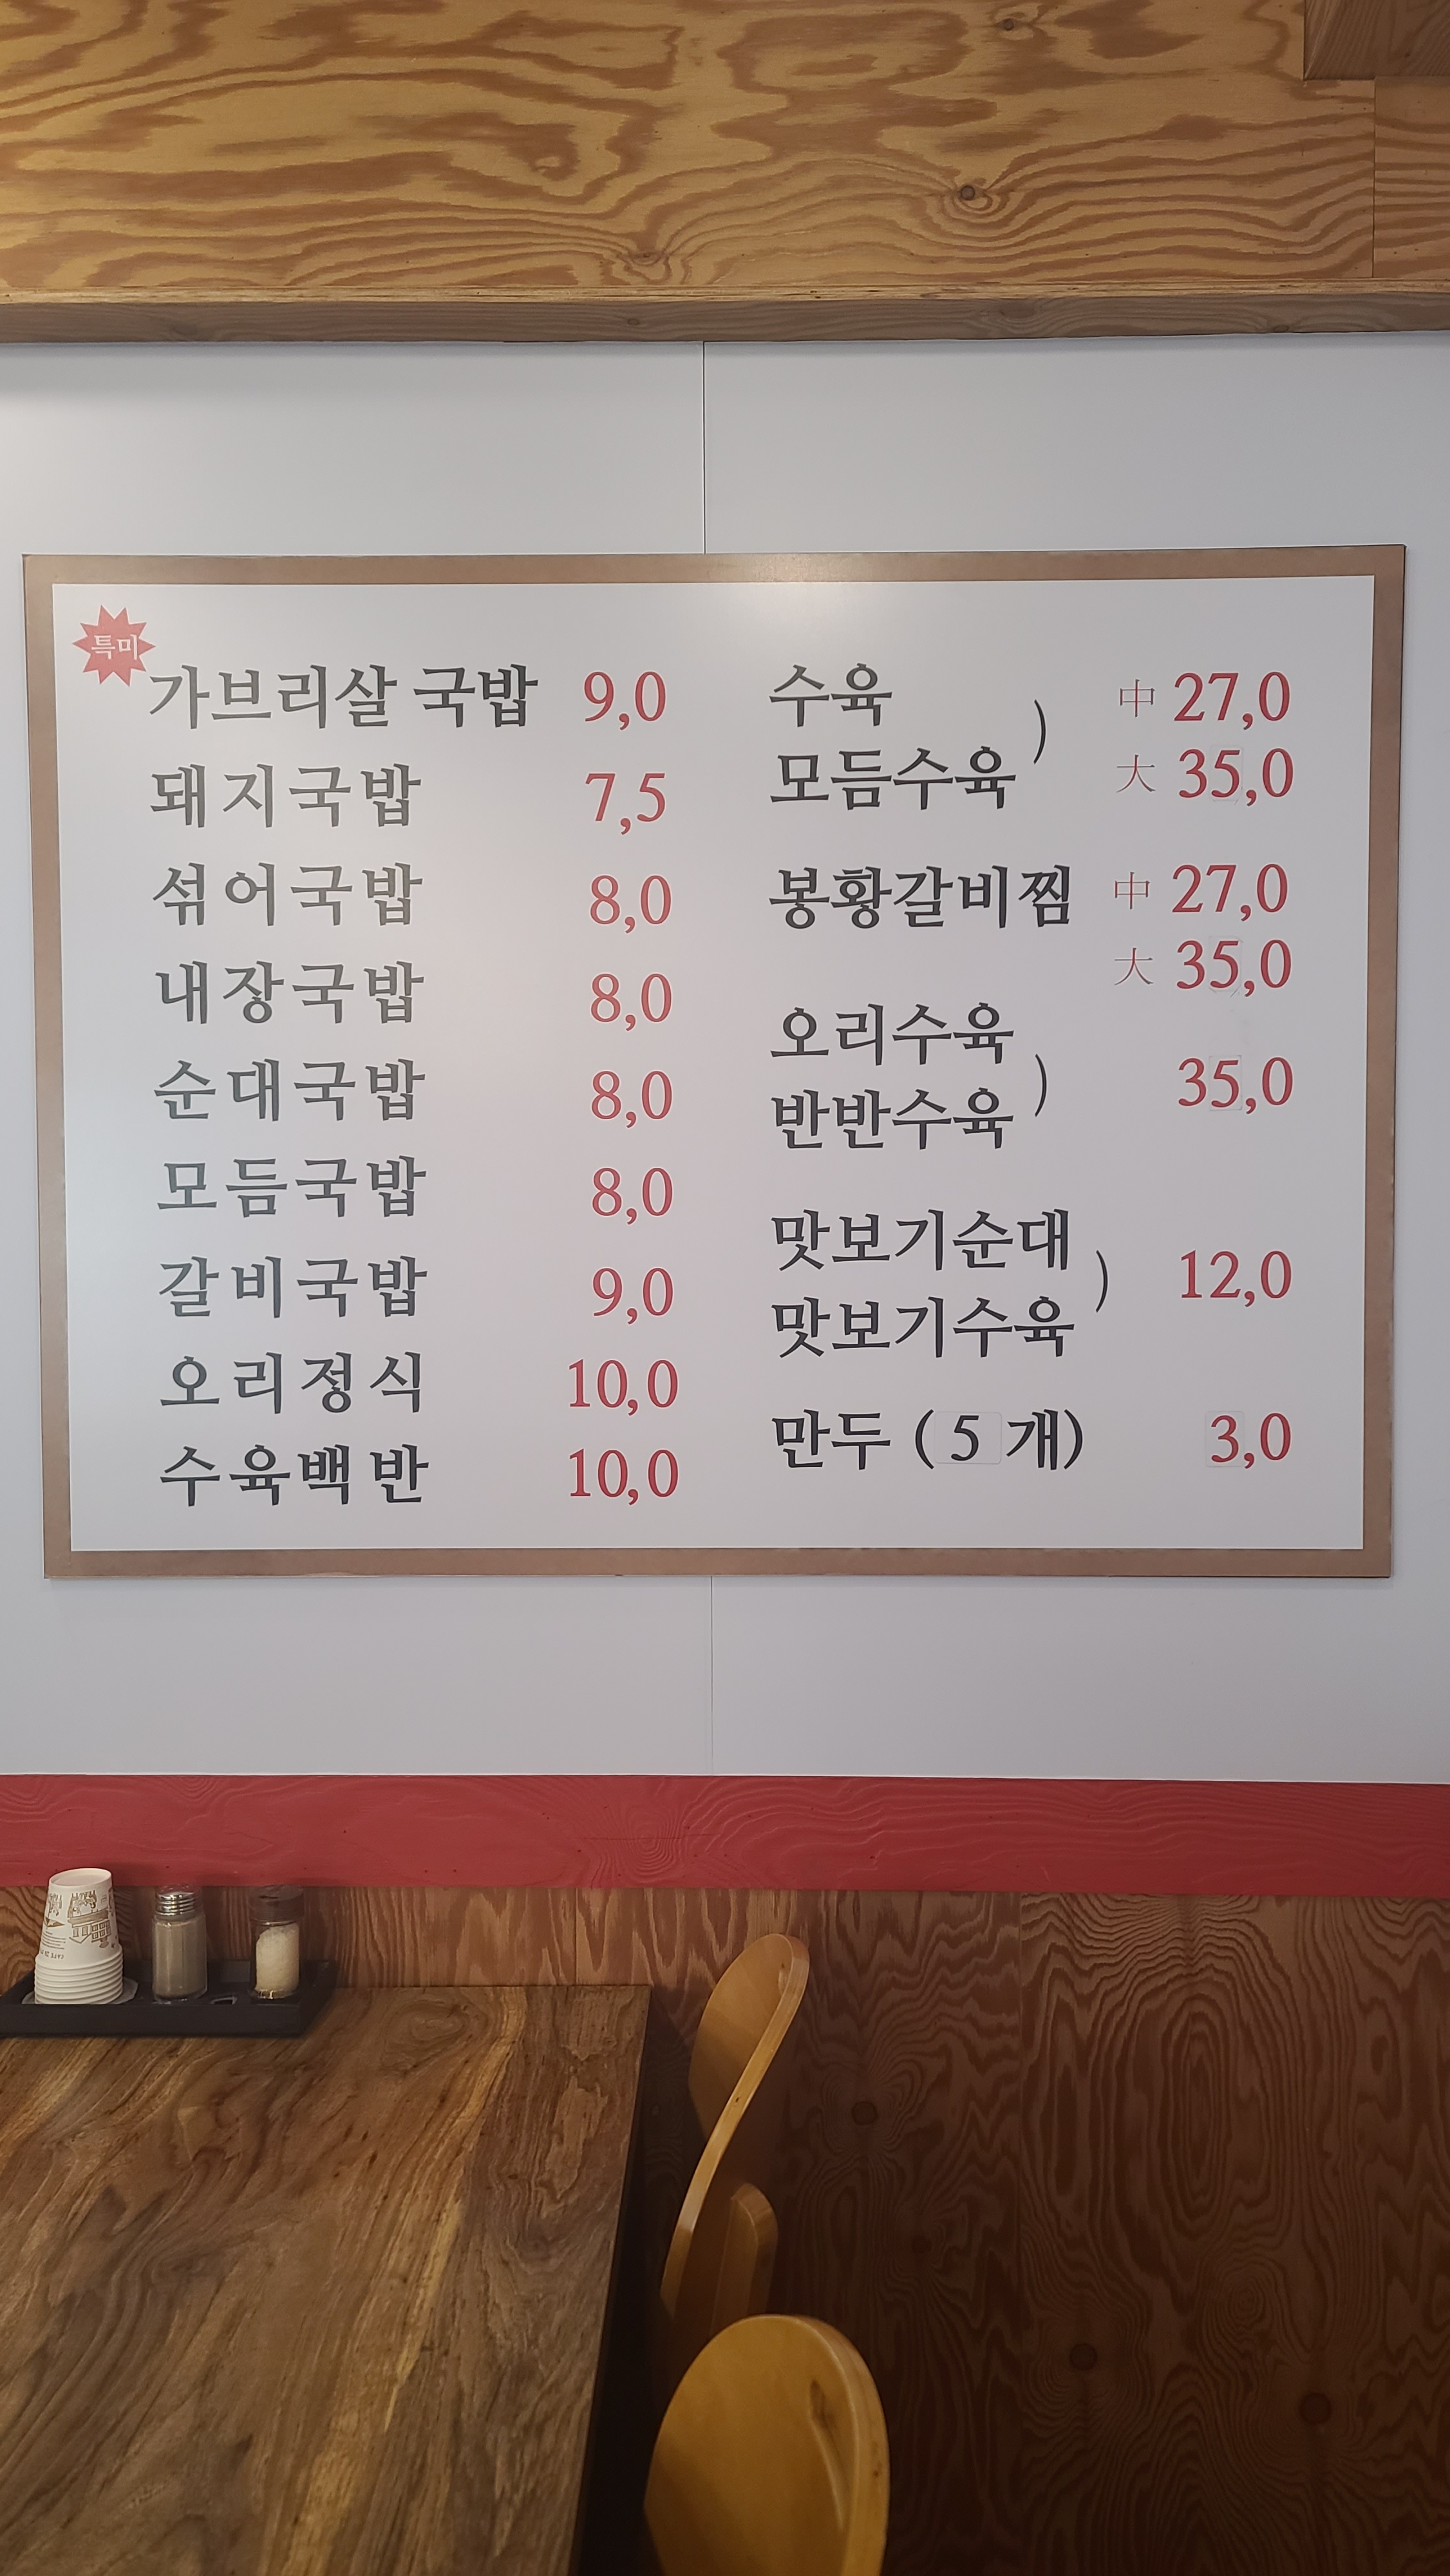 특미
가브리살 국밥 9,0
돼지국밥 7,5
섞어국밥 8,0
내장국밥 8,0
순대국밥 8,0
모듬국밥 8,0
갈비국밥 9,0
오리정식 10,0
수육백반 10,0
수육 中 27,0
모듬수육 ) 大 35,0
봉황갈비찜 中 27,0
大 35,0
오리수육
반반수육 ) 35,0
맛보기순대
맛보기수육 ) 12,0
만두 ( 5 개) 3,0